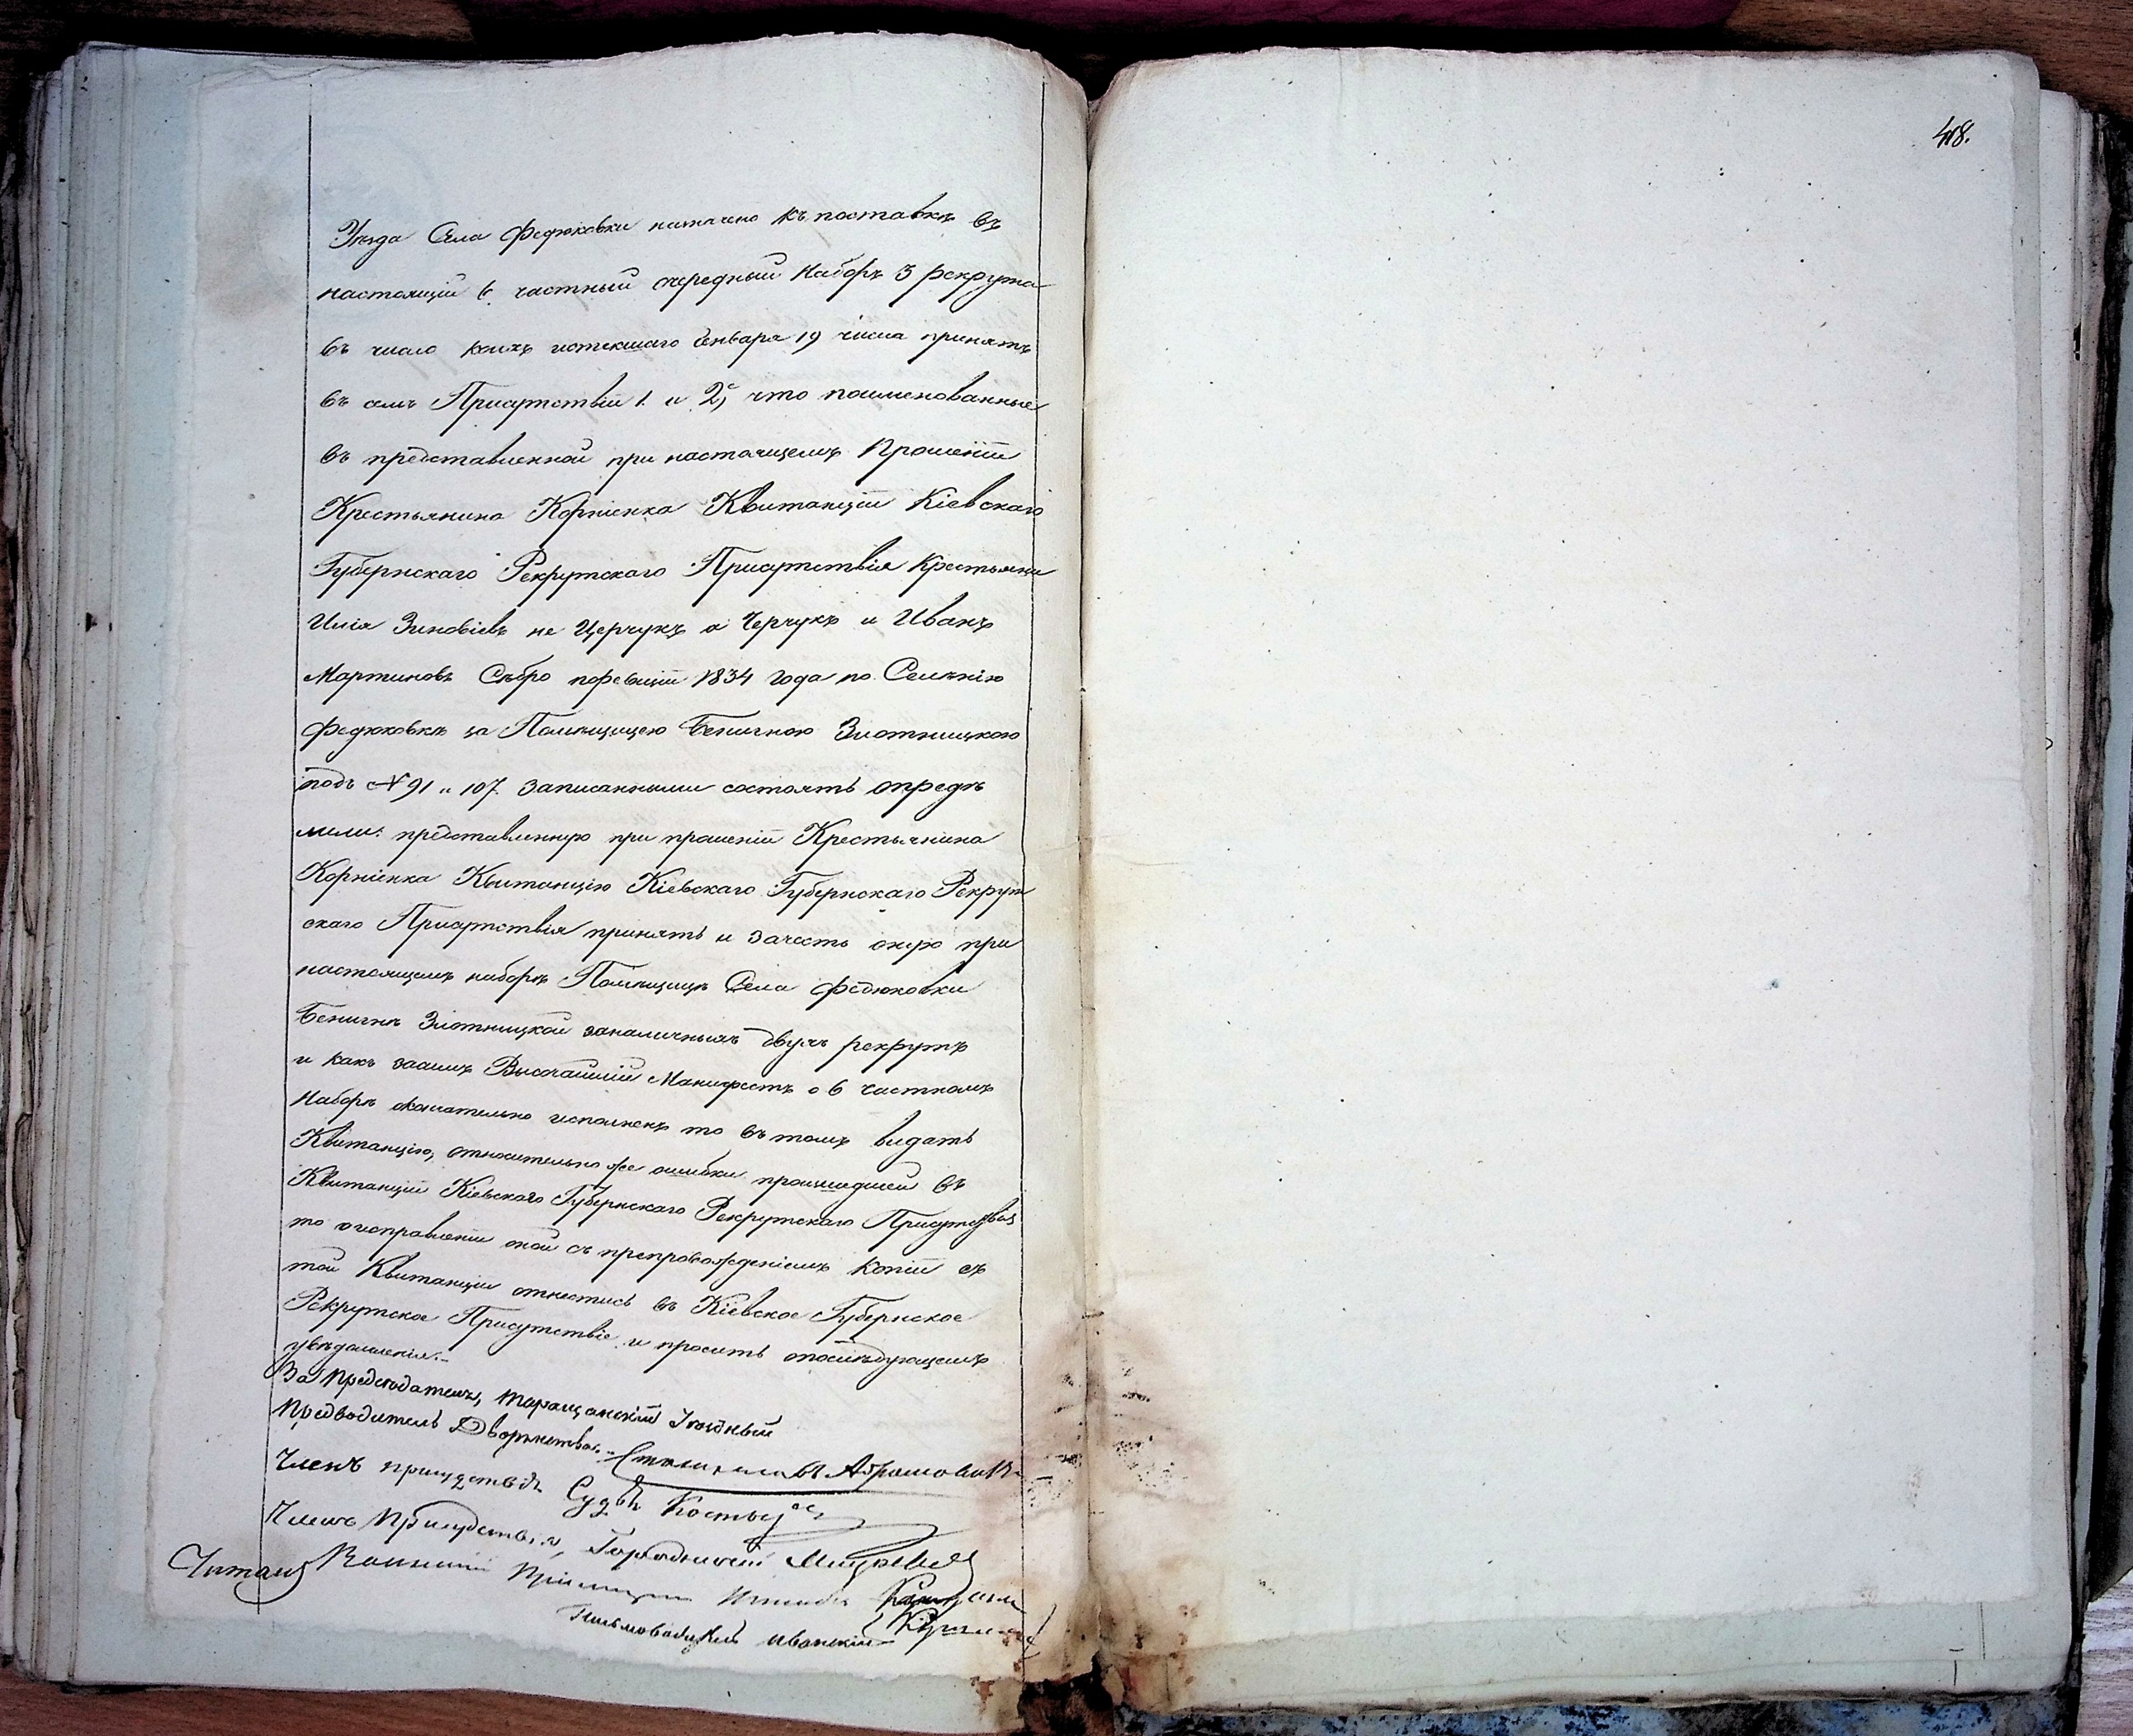 Уѣзда Села Федюковки назначено къ поставкѣ въ
настоящій 6. частный очередный Наборъ 3 рекрута
въ число коихъ истекшаго Генваря 19 числа принятъ
въ семъ Присутствіи 1. и 2, что поименованные
въ представленной при настоящемъ Прошеніи
Крестьянина Корніенка Квитанціи Кіевскаго
Губернскаго Рекрутскаго Присутствія Крестьяни
Илія Зиновіевъ не Церчукъ а Черчукъ и Иванъ
Мартиновъ Сѣбро по ревизіи 1834 года по Селенію
Федюковкѣ за Помѣщицею Бенигною Злотницкою
подъ № 91 и 107. записанными состоятъ опредѣ
лили: представленную при прошеніи Крестьянина
Корніенка Квитанцію Кіевскаго Губернскаго Рекрут
скаго Присутствія принять и зачесть оную при
настоящемъ наборѣ Помѣщицѣ Села Федюковки
Бенигнѣ Злотницкой заналичныхъ двухъ рекрутъ
и какъ засимъ Высочайшій Манифестъ о 6 частномъ
Наборѣ окончательно исполненъ то въ томъ видать
Квитанцію, относительно же ошибки происшедшей въ
Квитанціи Кіевскаго Губернскаго Рекрутскаго Присутствія
то о исправленіи оной съ препровожденіемъ Копіи съ
той Квитанціи отнестись въ Кіевское Губернское
Рекрутское Присутствіе и просить опослѣдующемъ
увѣдомленія.
За Предсѣдателя, Таращанскій Уѣздный
Предводитель Дворянства
Членъ присудствія Судья
Членъ Присудствія, Городничій
Читалъ Военный Пріемщикъ
Письмоводитель
418.